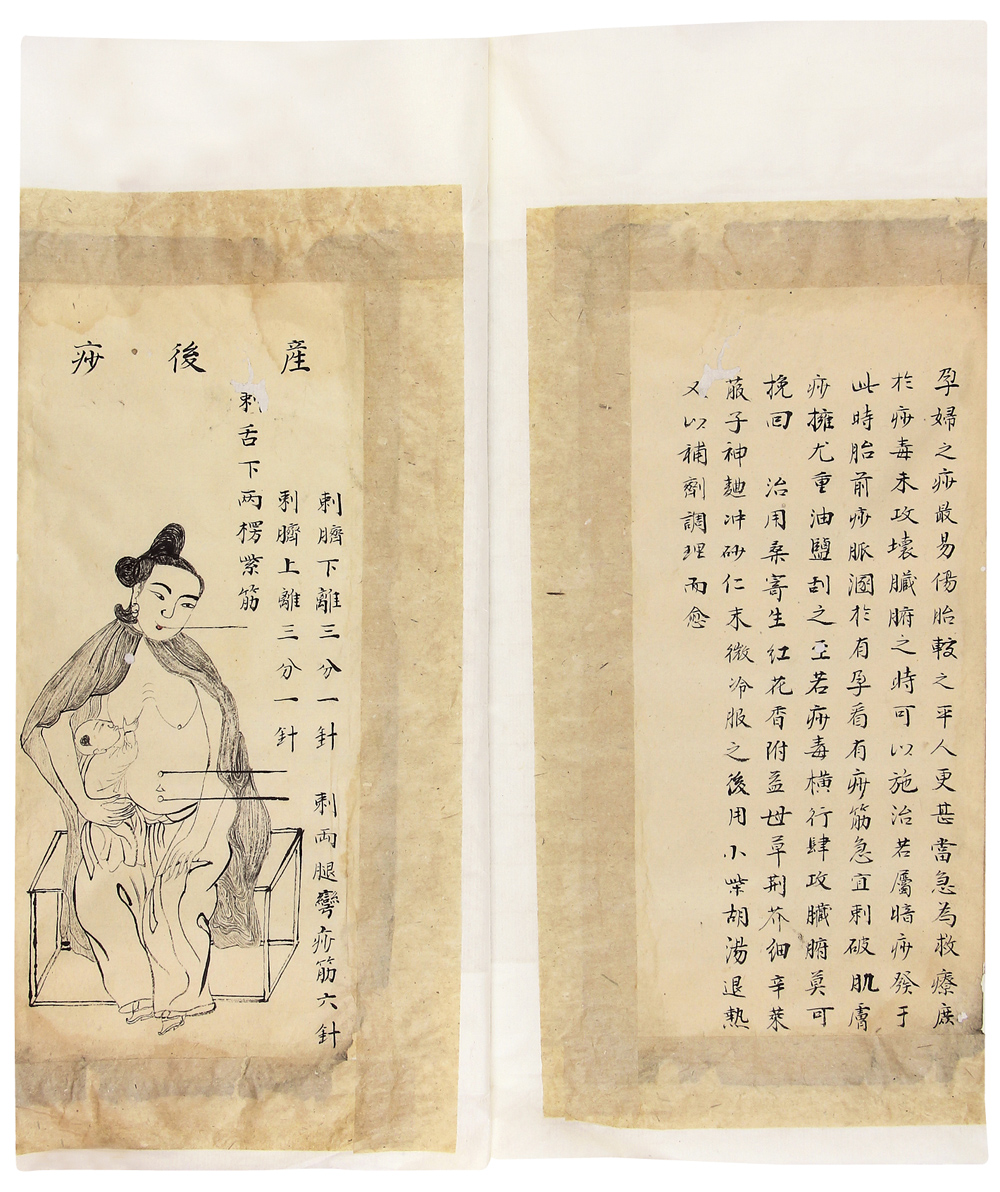 孕婦之痧最易傷胎較之平人更甚當急為救療庶
於痧毒未攻壞臟腑之時可以施治若屬暗痧發于
此時胎前痧脈溷於有孕看有痧筋急宜刺破肌膚
痧擁尤重油鹽刮之至若痧毒橫行肆攻臟腑莫可
挽回 治用桑寄生 紅花香附益母草荆芥細辛萊
菔子神麯冲砂仁末微冷服之後用小柴胡湯退熱
又以補劑調理而愈
産後痧
刺臍下離三分一針 刺両腿彎痧筋六針
刺臍上離三分一針
刺舌下両楞紫筋